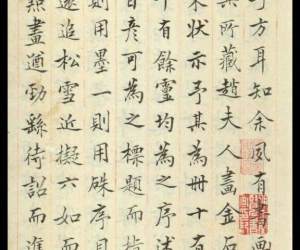 可方耳知余夙有書畫
其所藏趙夫人畫金石
木狀示予其為冊十有
千有餘靈均為之序述
日彥可為之標題而指
則用墨一則用硃序目
遂追松雪近擬六如而
點畫遒勁繇待詔而進